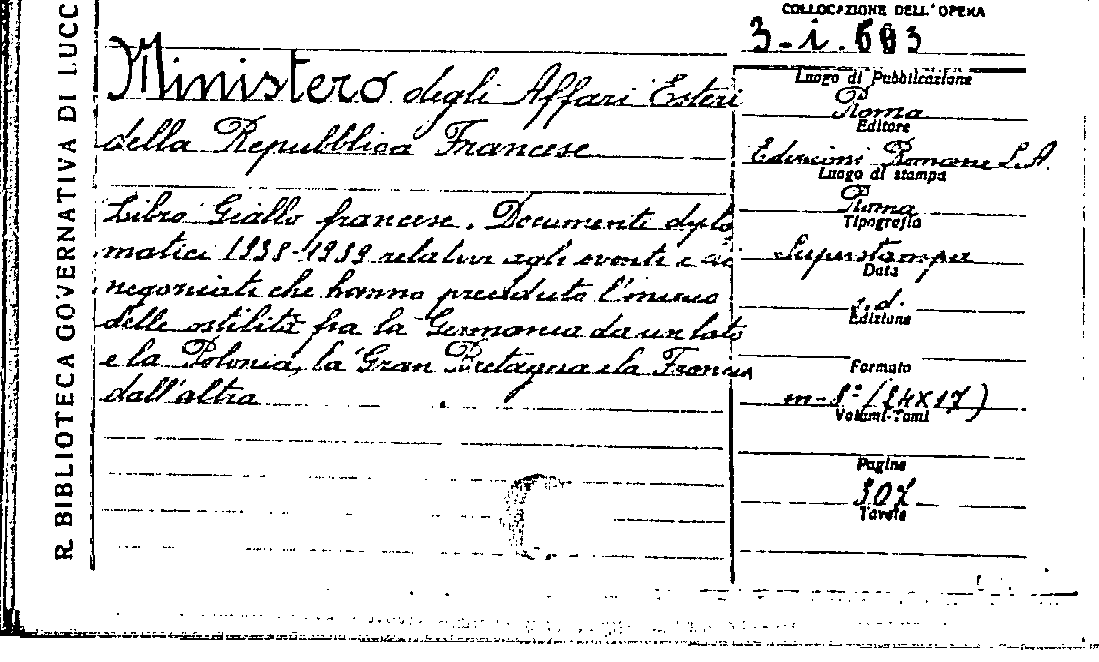 R. BIBLIOTECA GOVERNATIVA DI LUCC
COLLOCAZIONE DELL'OPERA
3-i.603
Ministero degli Affari Esteri
della Repubblica Francese
Libro Giallo francese. Documenti diplo
matici 1938-1939 relativi agli eventi e ai
negoziati che hanno preceduto l'inizio
delle ostilità fra la Germania da un lato
e la Polonia, la Gran Bretagna e la Francia
dall'altra
Luogo di Pubblicazione
Roma
Editore
Edizioni Romane S.A.
Luogo di stampa
Roma
Tipografia
Superstampa
Data
s.d.
Edizione
Formato
in-8º (24x17)
Volumi-Tomi
Pagine
307
Tavole